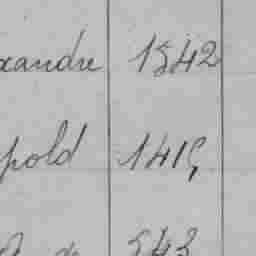 xandre 1542
pold 1415
543